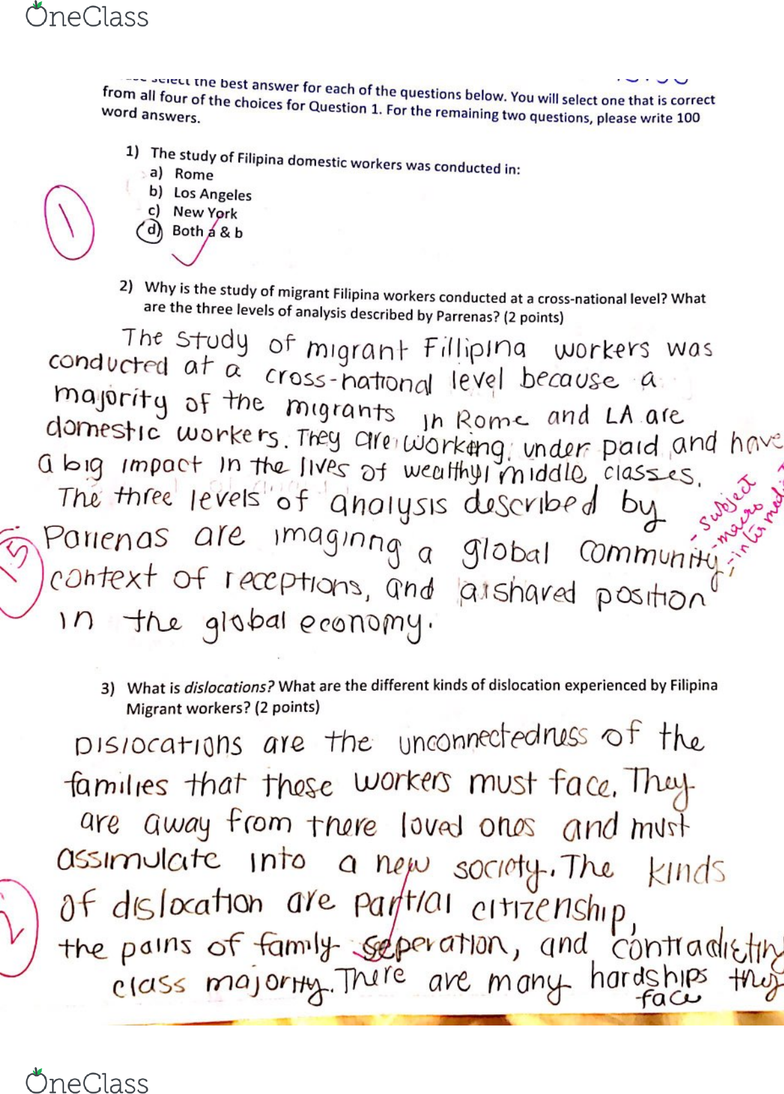 OneClass
select the best answer for each of the questions below. You will select one that is correct
from all four of the choices for Question 1. For the remaining two questions, please write 100
word answers.
1) The study of Filipina domestic workers was conducted in:
a) Rome
b) Los Angeles
c) New York
d) Both a & b
1
2) Why is the study of migrant Filipina workers conducted at a cross-national level? What
are the three levels of analysis described by Parrenas? (2 points)
The study of migrant Fillipina workers was
conducted at a cross-national level because a
majority of the migrants in Rome and LA are
domestic workers. They are working, under paid and have
a big impact in the lives of wealthy/middle classes.
The three levels of analysis described by
- subject
- macro
Parrenas are imagining a global community,
1.5
context of receptions, and a shared position
in the global economy.
3) What is dislocations? What are the different kinds of dislocation experienced by Filipina
Migrant workers? (2 points)
Dislocations are the unconnectedness of the
families that these workers must face. They
are away from there loved ones and must
assimulate into a new society. The kinds
of dislocation are partial citizenship,
2
the pains of family seperation, and contradicting
class majority. There are many hardships they
face
OneClass